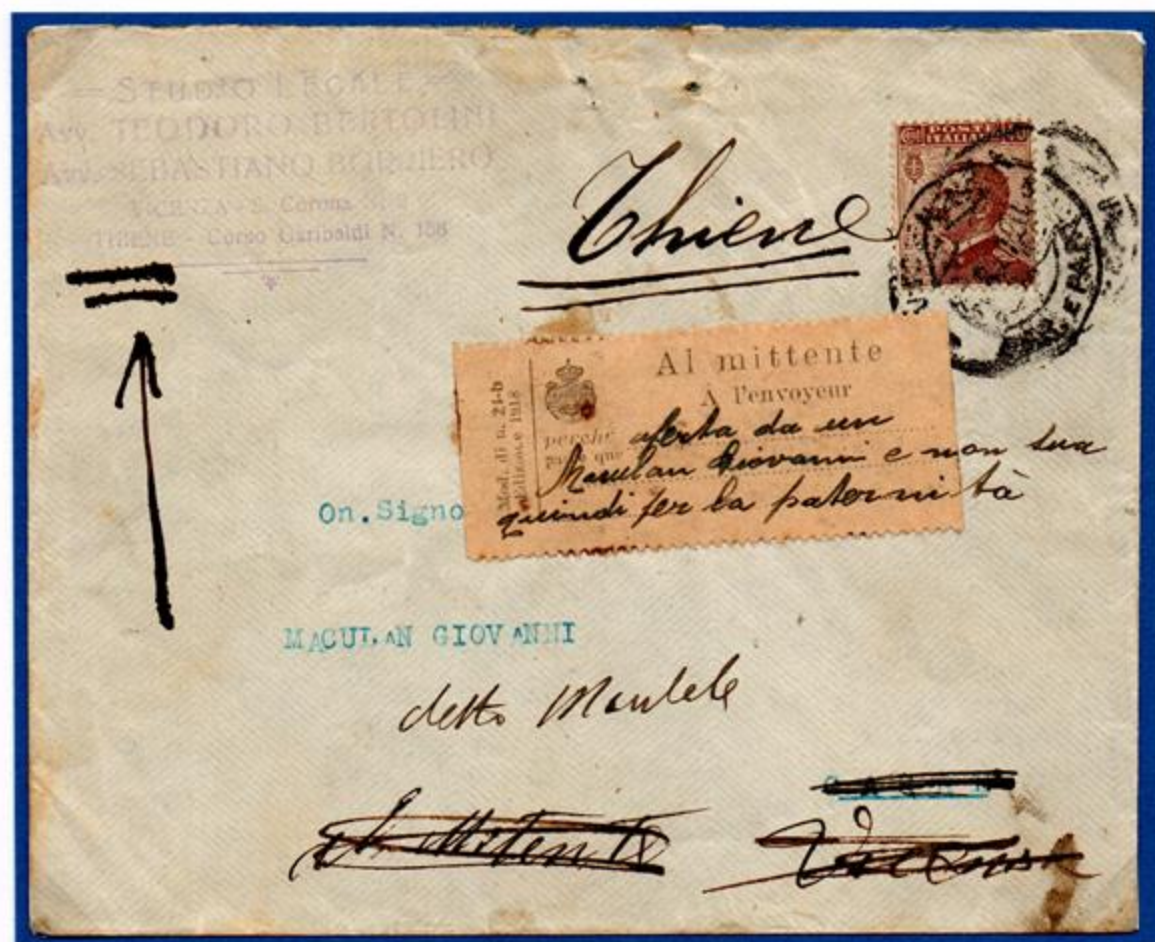 — STUDIO LEGALE —
Avv. TEODORO BERTOLINI
Avv. SEBASTIANO BORRIERO
VICENZA - S. Corona
THIENE - Corso Garibaldi N. 156
Thiene
POSTE
ITALIANE
Mod. di n. 24-b
Edizione 1918
Al mittente
À l'envoyeur
perché aferta da un
Maculan Giovanni e non sua
quindi per la paternità
On.Signo
MACULAN GIOVANNI
detto
Al Mitente
Vicenza